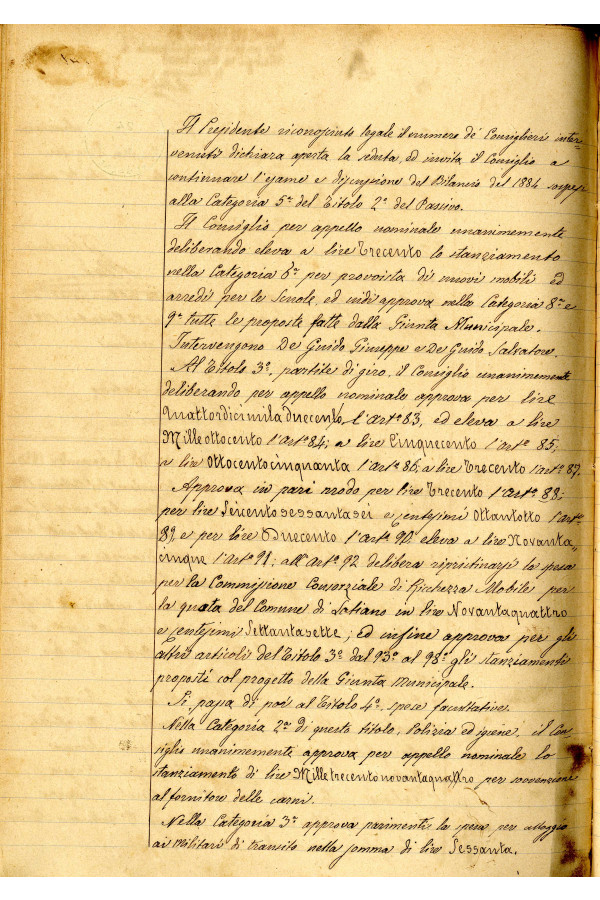 Il Presidente riconosciuto legale il numero de' Consiglieri inter-
venuti dichiara aperta la seduta, ed invita il Consiglio a
continuare l'esame e discussione del Bilancio del 1884
alla Categoria 5ª del Titolo 2º del Passivo.
Il Consiglio per appello nominale unanimemente
deliberando eleva a lire Trecento lo stanziamento
nella Categoria 6ª per provvista di nuovi mobili ed
arredi per le Scuole, ed indi approva nella Categoria 8ª e
9ª tutte le proposte fatte dalla Giunta Municipale.
Intervengono De Guido Giuseppe e De Guido Salvatore.
Al Titolo 3º, partite di giro, il Consiglio unanimemente
deliberando per appello nominale approva per lire
Quattordicimila Duecento, l'artº 83, ed eleva a lire
Milleottocento l'artº 84; a lire Cinquecento l'artº 85;
a lire Ottocentocinquanta l'artº 86; a lire Trecento l'artº 87.
Approva in pari modo per lire Trecento l'artº 88;
per lire Seicentosessantasei e Centesimi Ottantotto l'artº
89, e per lire Duecento l'artº 90; eleva a lire Novanta-
cinque l'artº 91; all'artº 92 delibera ripristinarsi la spesa
per la Commissione Consorziale di Ricchezza Mobile per
la quota del Comune di Latiano in lire Novantaquattro
e Centesimi Settantasette; ed infine approva per gli
altri articoli del Titolo 3º dal 93º al 98º gli stanziamenti
proposti col progetto della Giunta Municipale.
Si passa di poi al Titolo 4º spese facoltative.
Nella Categoria 2ª di questo titolo, Polizia ed igiene, il Con-
siglio unanimemente approva per appello nominale lo
stanziamento di lire Milletrecentonovantaquattro per sovvenzione
al fornitore delle carni.
Nella Categoria 3ª approva parimenti la spesa per alloggio
ai Militari di transito nella somma di lire Sessanta.